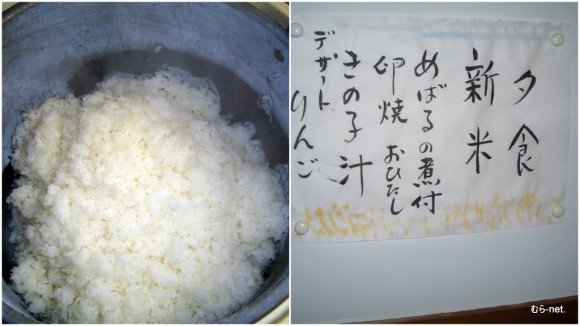 夕食
新米
めばるの煮付
卵焼 おひたし
きの子汁
デザート りんご
むら-net.